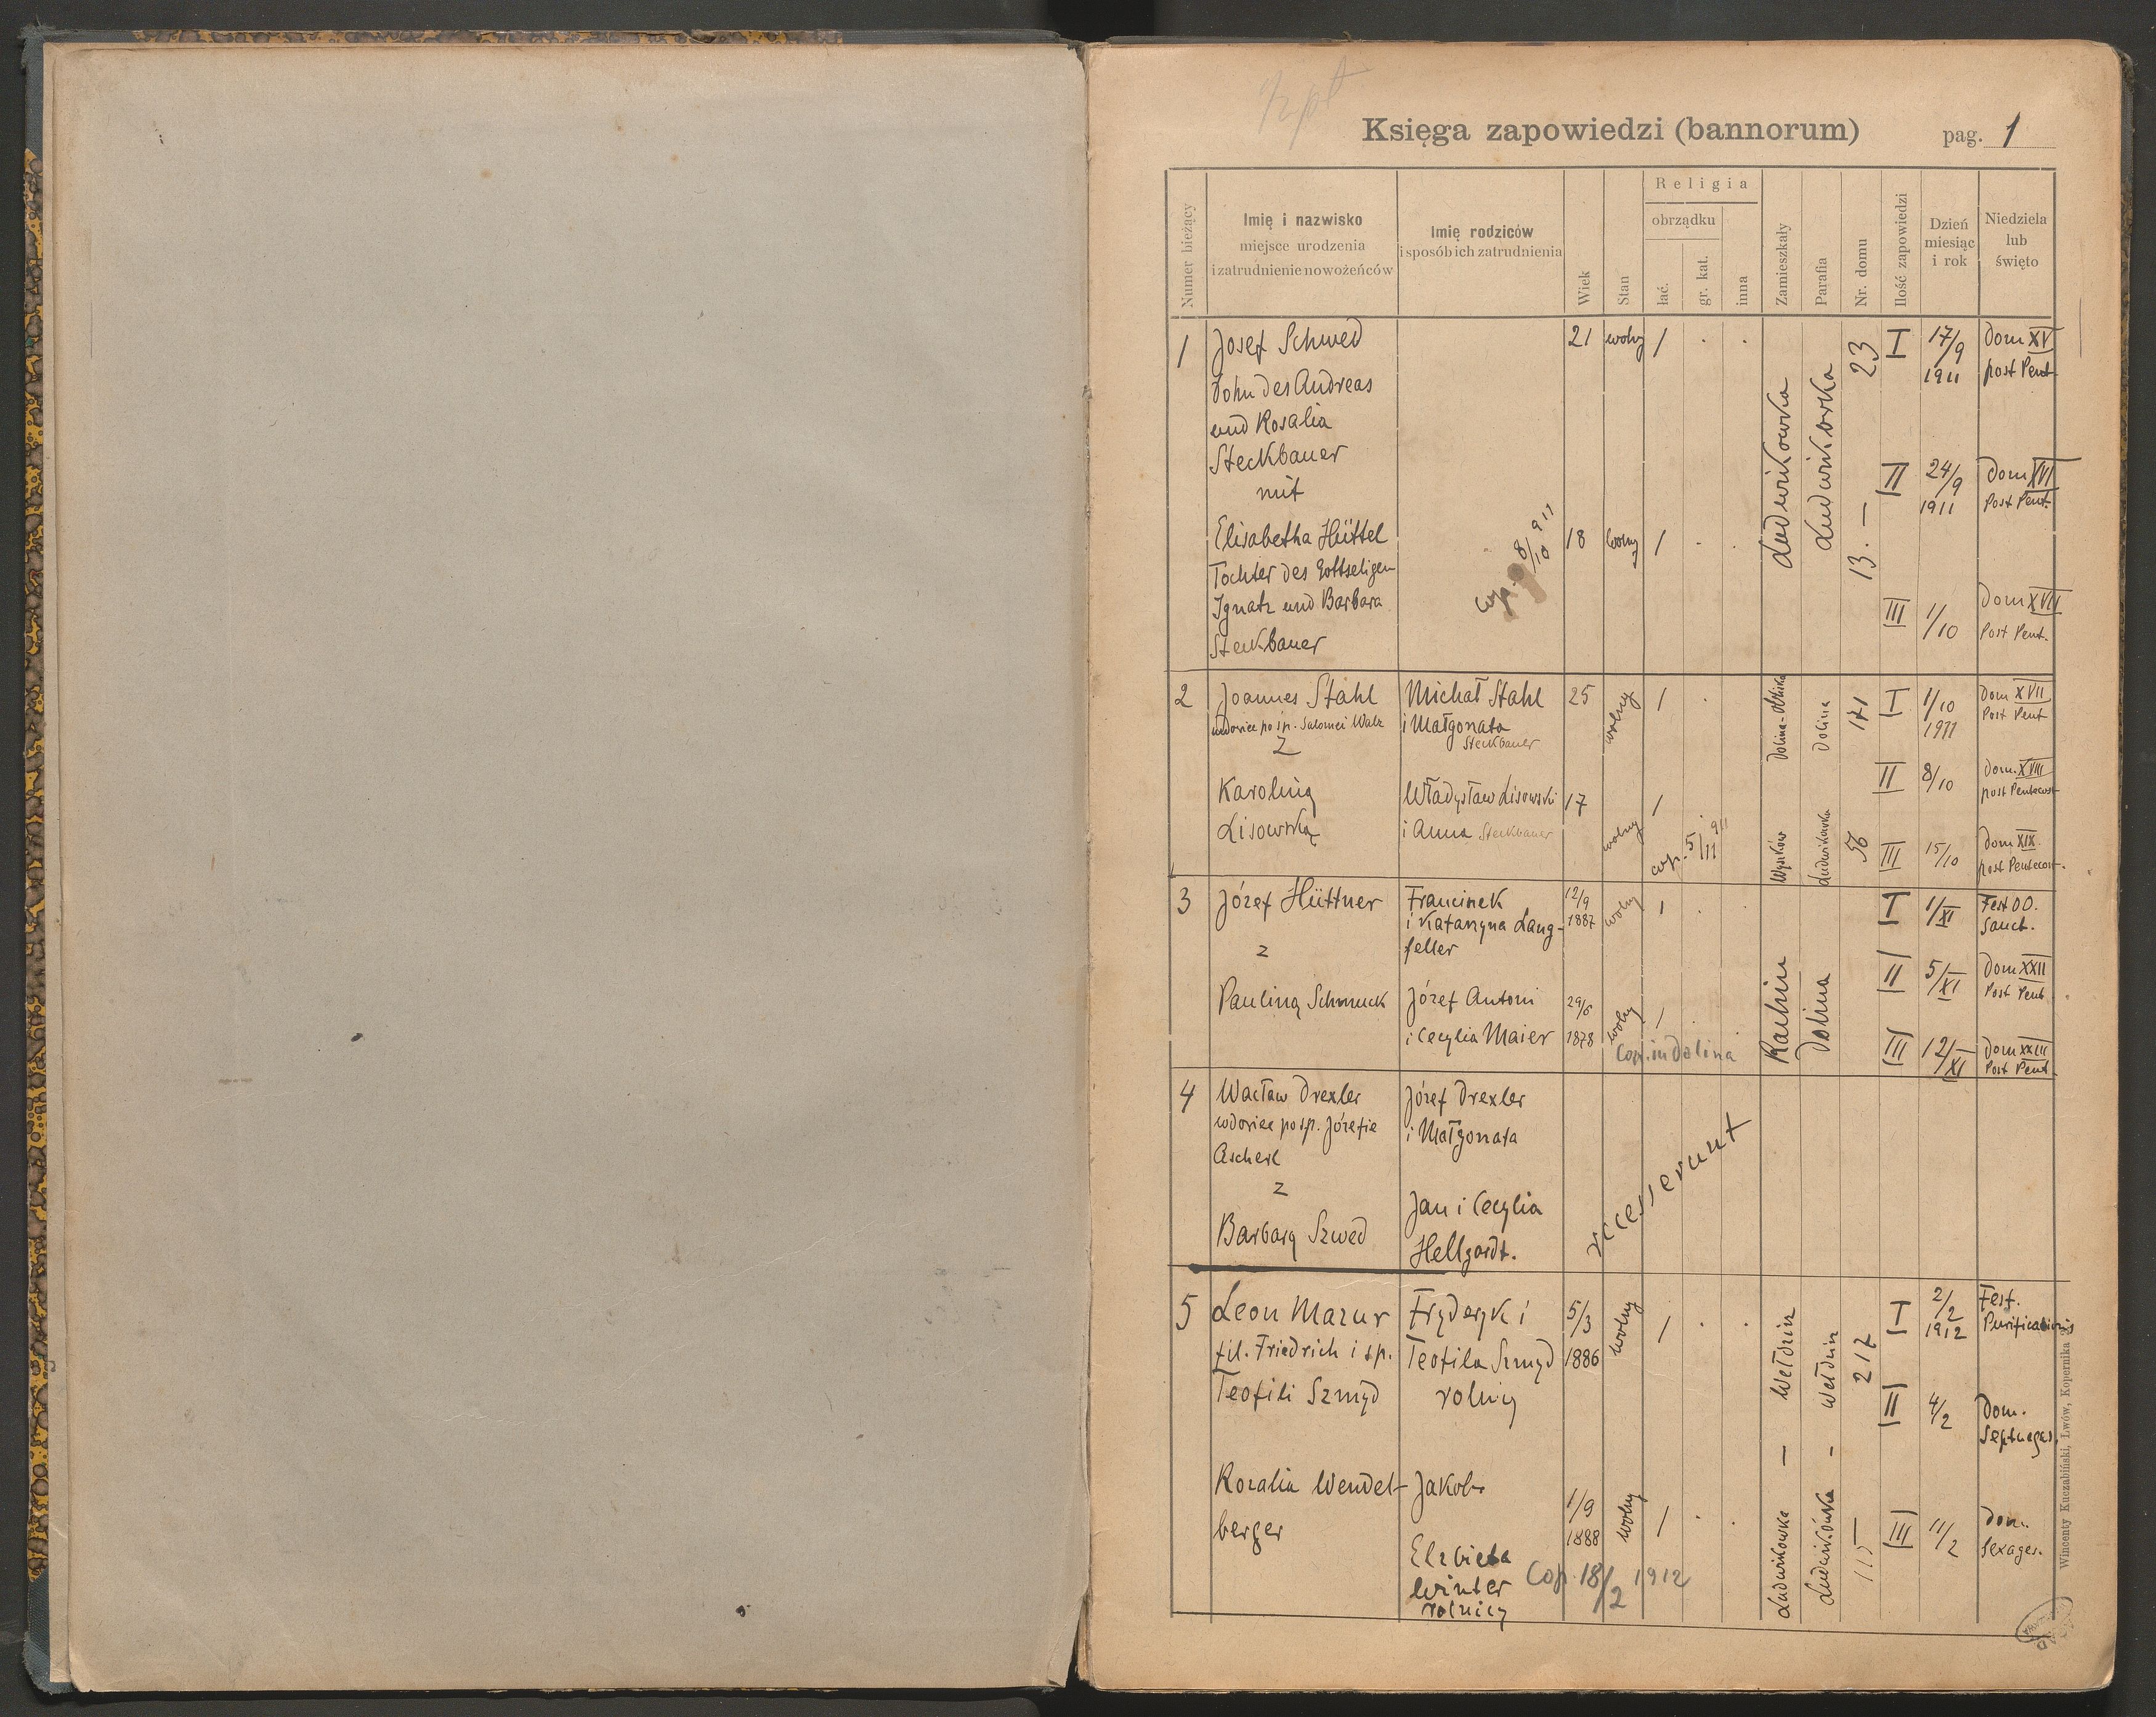 Księga zapowiedzi (bannorum)
pag. 1
Numer bieżący
Imię i nazwisko
miejsce urodzenia
i zatrudnienie nowożeńców
Imię rodziców
i sposób ich zatrudnienia
Wiek
Stan
Religia
obrządku
łać.
gr. kat.
inna
Zamieszkały
Parafia
Nr. domu
Ilość zapowiedzi
Dzień
miesiąc
i rok
Niedziela
lub
święto
1 Josef Schwed 21 wolny 1 . . 23 I 17/9 Dom XV
1911 post Pent.
Sohn des Andreas
und Rosalia
Steckbauer
Ludwikowka Ludwikowka
II 24/9 Dom XVI
1911 Post Pent.
mit
Elisabetha Hüttel 18 wolny 1 . . 13. —
Tochter des Gottseligen
Ignatz und Barbara
Steckbauer
cop. 8/10 911
III 1/10 Dom XVII
Post Pent.
2 Joannes Stahl Michał Stahl 25 wolny 1 . Dolina Dolina 171 I 1/10 Dom XVII
wdowiec po śp. Salomei Walz i Małgorzata 1911 Post Pent
z Steckbauer
II 8/10 Dom. XVIII
post Pentecost
Karoliną Władysław Lisowski 17 wolny 1
Lisowską i Anna Steckbauer
cop. 5/11 911
Wyszków Ludwikówka 56 III 15/10 Dom XIX.
post Pentecost.
3 Józef Hüttner Francizek 12/9 wolny 1 . . I 1/XI Fest OO.
i Katarzyna Lang- 1887 Sanct.
z feller
Rachiń Dolina
II 5/XI Dom XXII
Post Pent
Pauliną Schmuck Józef Antoni 29/6 wolny 1 .
i Cecylia Maier 1878
Cop. in Dolina
III 12/XI Dom XXIII
Post Pent.
4 Wacław Drexler Józef Drexler
wdowiec po śp. Józefie i Małgorzata
Ascherl
z
Barbarą Szwed Jan i Cecylia
Hellgardt.
recesserunt
5 Leon Mazur Fryderyk i 5/3 wolny 1 . . Wełdzirz Wełdzirz 217 I 2/2 Fest.
1912 Purificationis
fil. Friedrich i śp. Teofila Szmyd 1886
Teofili Szmyd rolnicy
II 4/2 Dom.
Septuages.
Rozalia Wendel- Jakob 1/9 wolny 1 . . Ludwikowka Ludwikówka 115 III 11/2 Dom.
berger 1888 Sexages.
Elzbieta
Winter
rolnicy
Cop. 18/2 1912
Wincenty Kuczabiński, Lwów, Kopernika